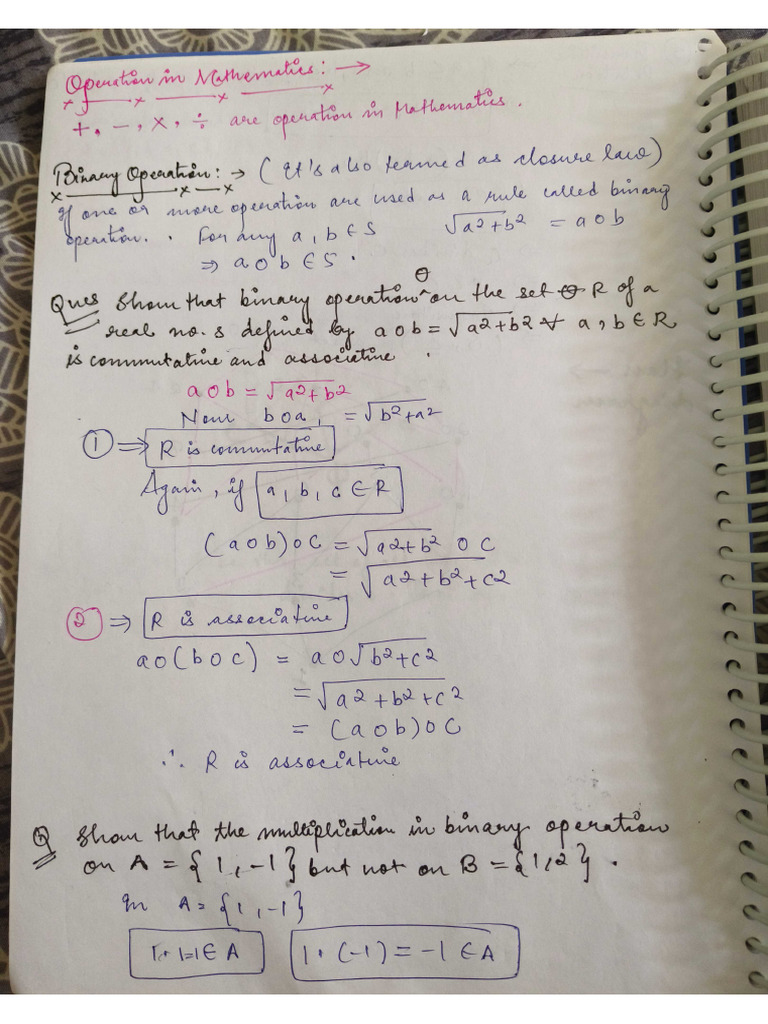 Operation in Mathematics: →
+, -, ×, ÷ are operation in Mathematics.
Binary Operation: → (It's also termed as closure law)
If one or more operation are used as a rule called binary
operation. . For any a, b ∈ S √a2+b2 = aob
⇒ aob ∈ S.
Ques Show that binary operation ^ O on the set R of a
real no.s defined by aob = √a2+b2 ∀ a, b ∈ R
is commutative and associative .
aob = √a2+b2
Now boa, = √b2+a2
① ⇒ R is commutative
Again, if a, b, c ∈ R
(aob)oc = √a2+b2 o c
= √a2+b2+c2
② ⇒ R is associative
ao(boc) = ao√b2+c2
= √a2+b2+c2
= (aob)oc
∴ R is associative
Q Show that the multiplication in binary operation
on A = {1, -1} but not on B = {1,2} .
In A = {1, -1}
1·1=1 ∈ A 1·(-1) = -1 ∈ A